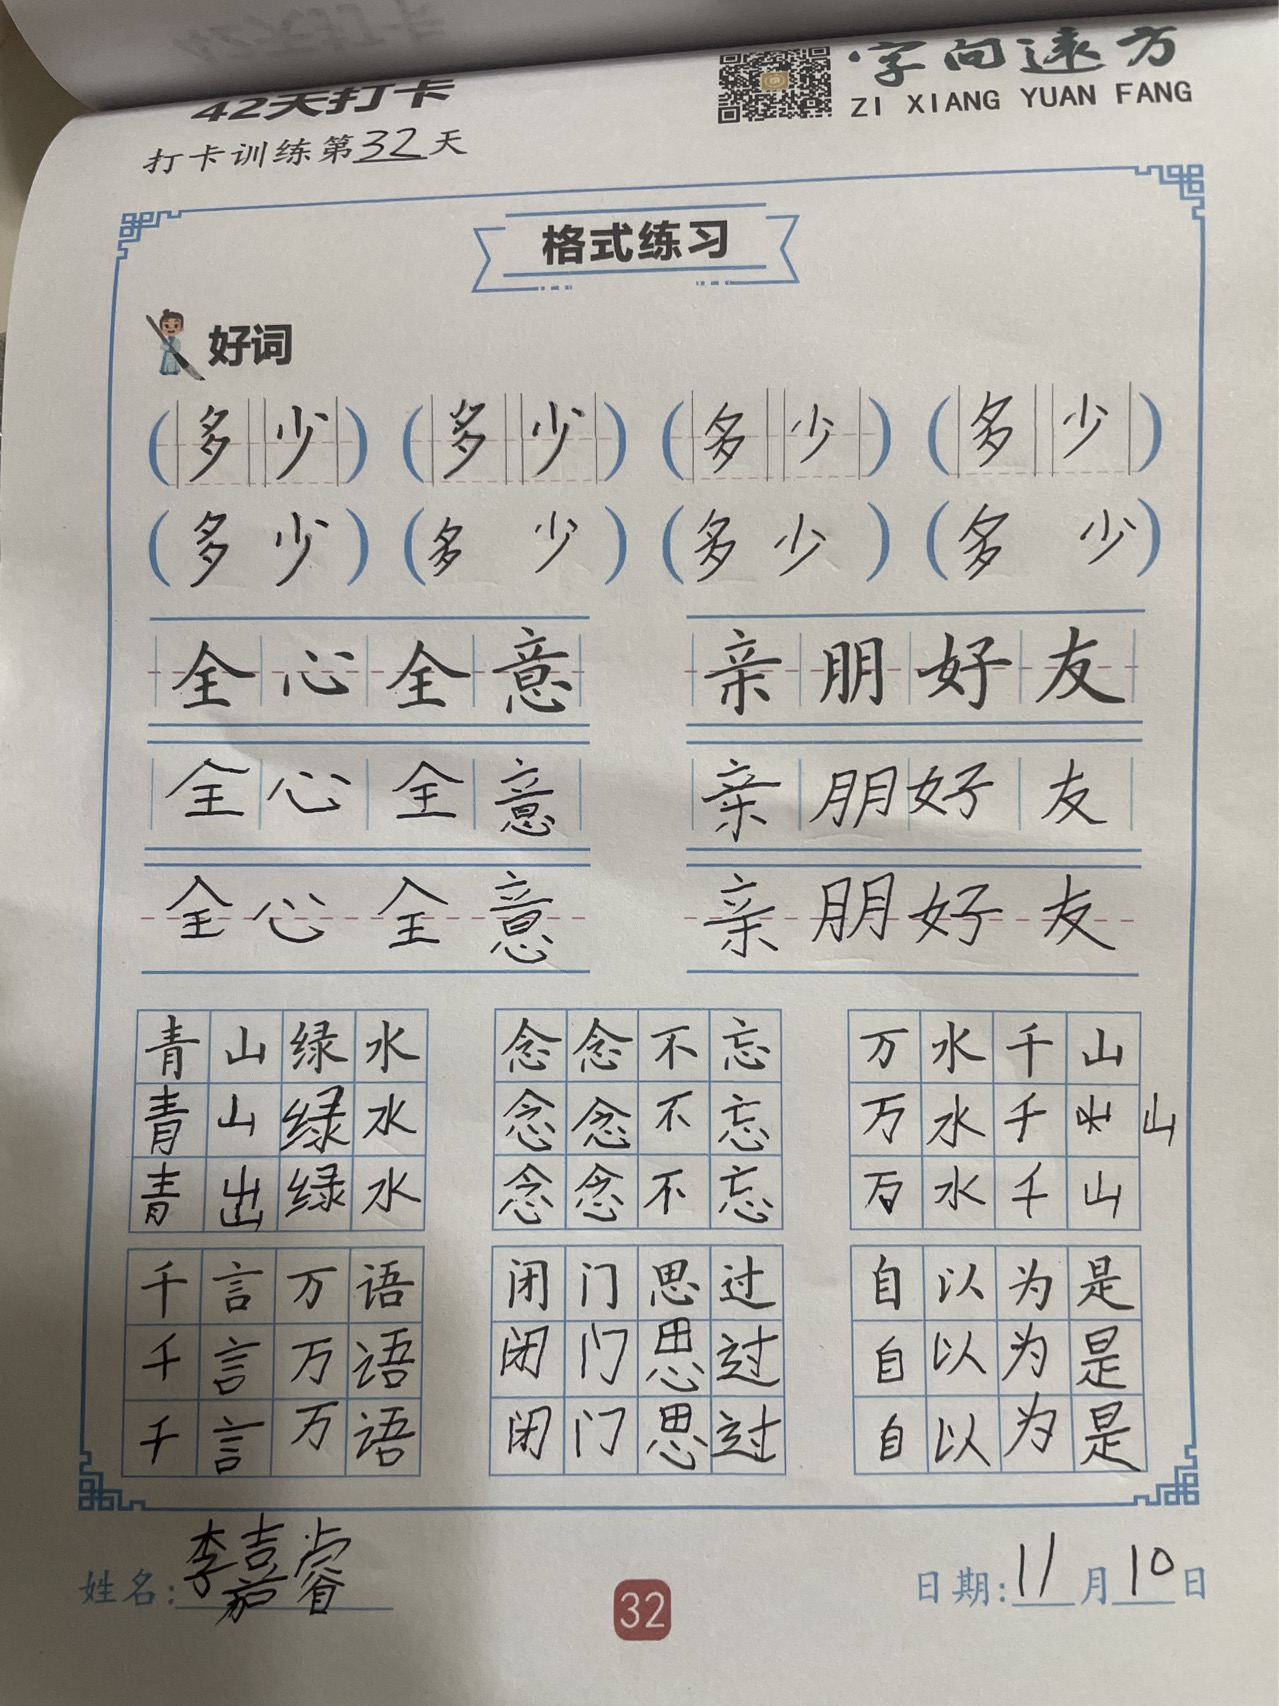 42天打卡
字向远方
ZI XIANG YUAN FANG
打卡训练第32天
格式练习
好词
(多少) (多少) (多少) (多少)
(多少) (多少) (多少) (多少)
全心全意 亲朋好友
全心全意 亲朋好友
全心全意 亲朋好友
青山绿水 念念不忘 万水千山
青山绿水 念念不忘 万水千 山
青出绿水 念念不忘 万水千山
千言万语 闭门思过 自以为是
千言万语 闭门思过 自以为是
千言万语 闭门思过 自以为是
姓名:李嘉睿 日期:11月10日
32